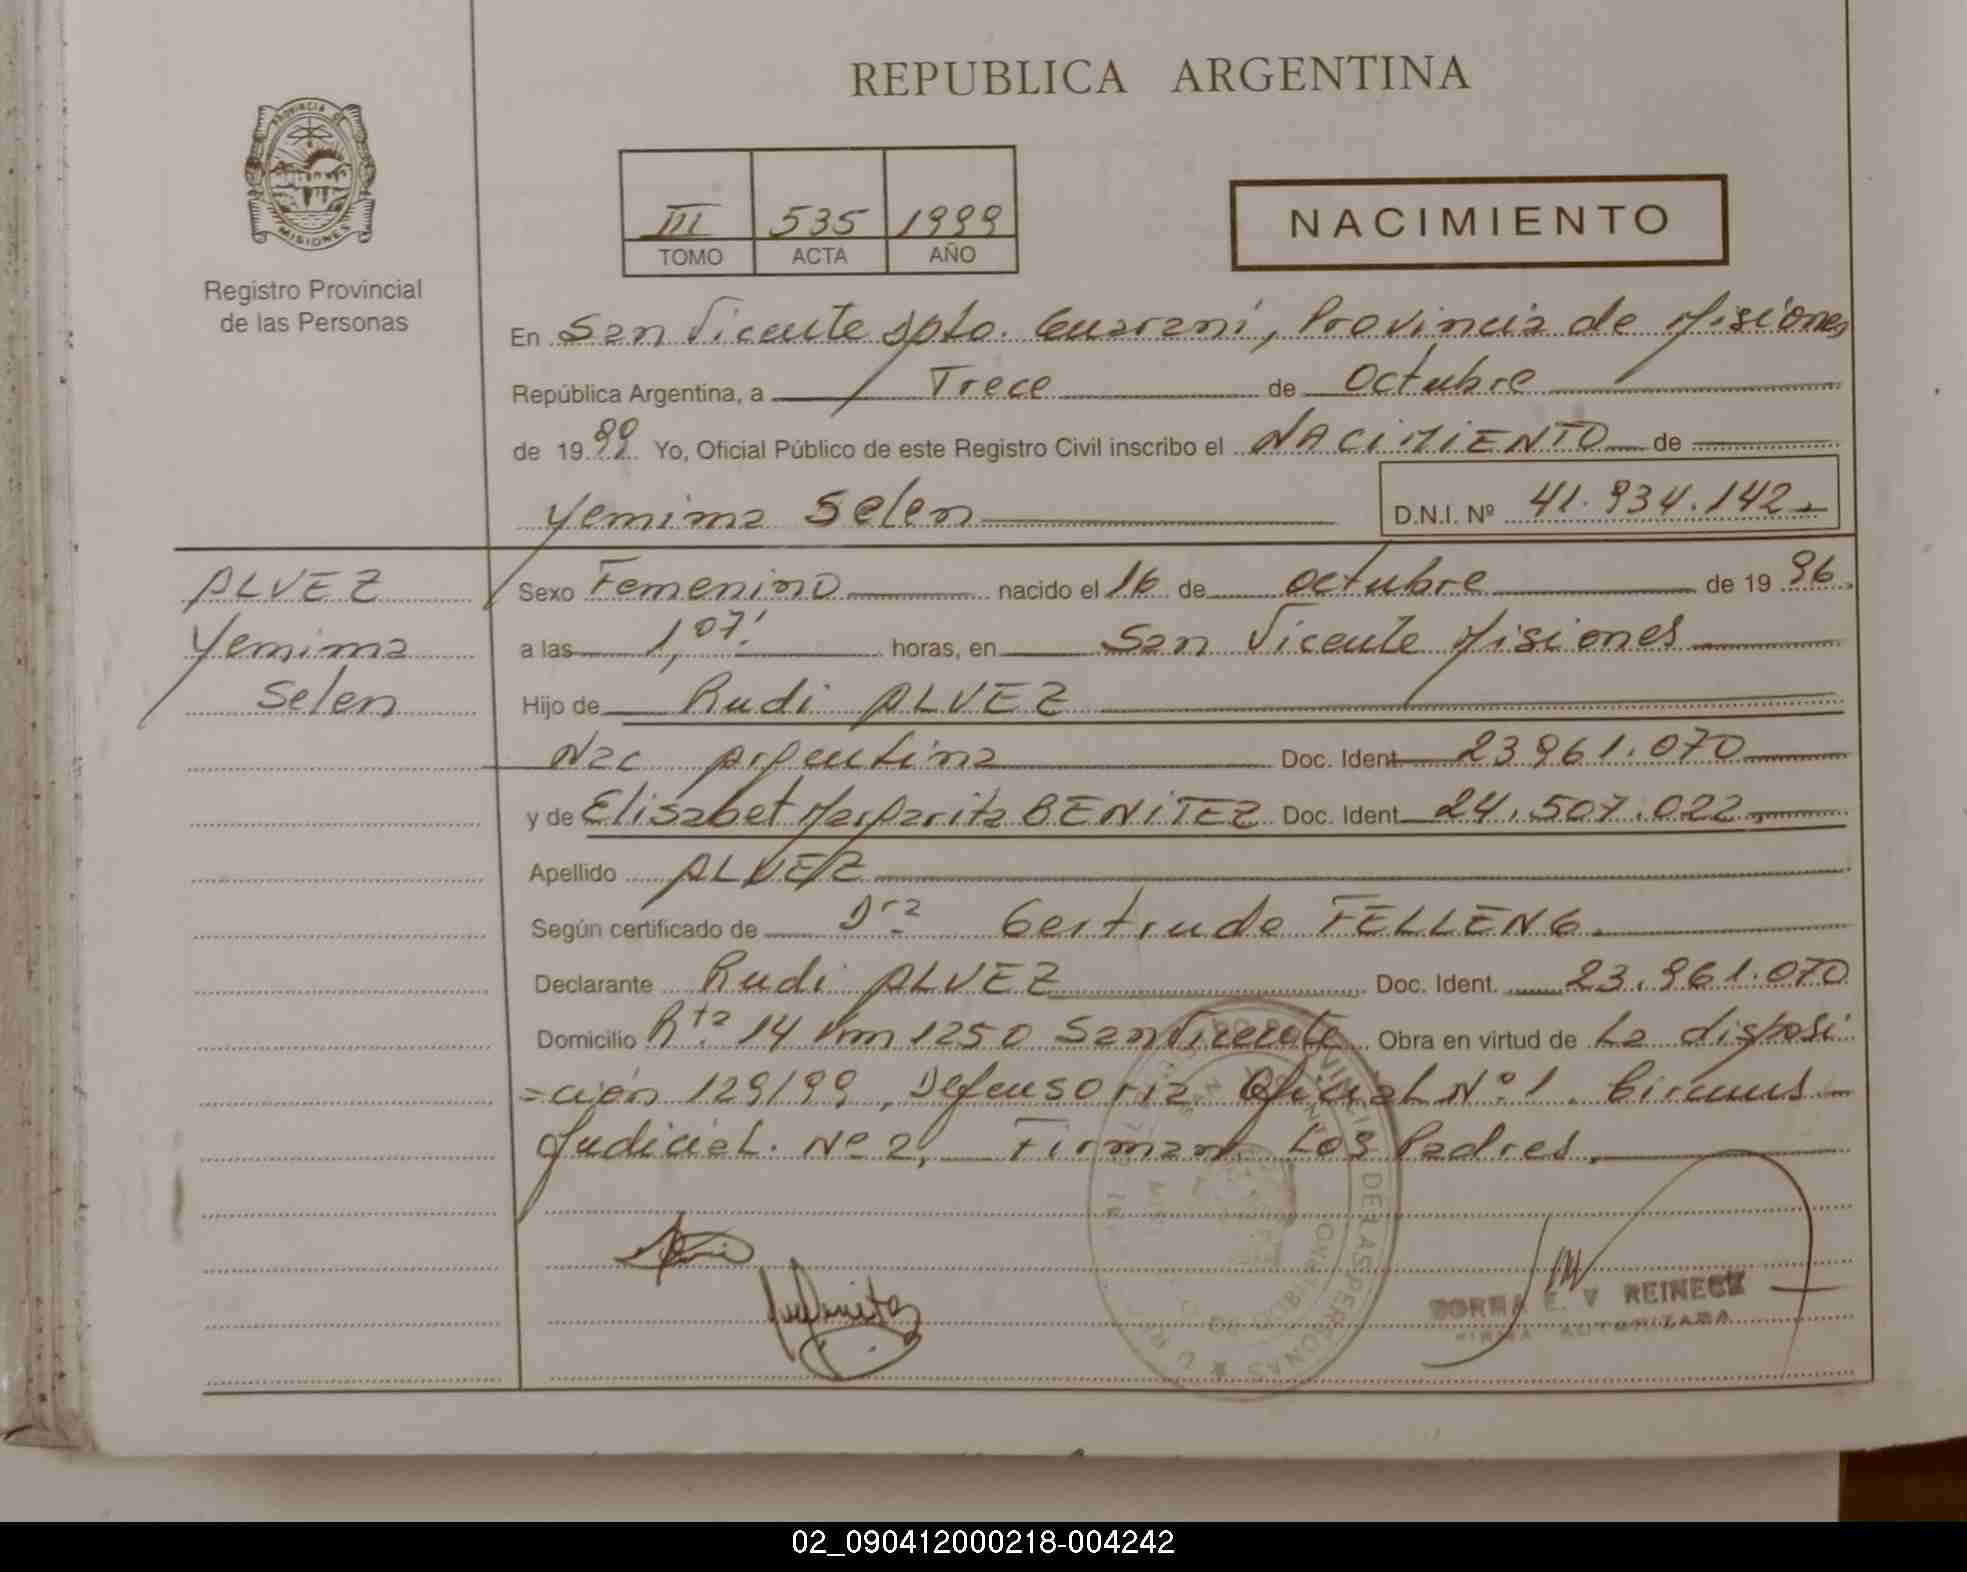 REPUBLICA ARGENTINA
PROVINCIA DE
MISIONES
Registro Provincial
de las Personas
III 535 1999
TOMO ACTA AÑO
NACIMIENTO
En San Vicente Dpto. Guaraní, Provincia de Misiones
República Argentina, a Trece de Octubre
de 1999 Yo, Oficial Público de este Registro Civil inscribo el NACIMIENTO de
Yemima Selen D.N.I. Nº 41.934.142
ALVEZ
Yemima
Selen
Sexo Femenino nacido el 16 de octubre de 1996.
a las 1,07' horas, en San Vicente Misiones
Hijo de Rudi ALVEZ
Nac Argentina Doc. Ident. 23.961.070
y de Elisabet Margarita BENITEZ Doc. Ident. 24.507.022
Apellido ALVEZ
Según certificado de Dra. Gertrude FELLENG.
Declarante Rudi ALVEZ Doc. Ident. 23.961.070
Domicilio Rta. 14 Km 1250 San Vicente Obra en virtud de La disposi
=ción 129/99, Defensoria Oficial Nº 1. Circuns
Judicial. Nº 2, Firman Los Padres.
E. V REINECK
FIRMA AUTORIZADA
02_090412000218-004242